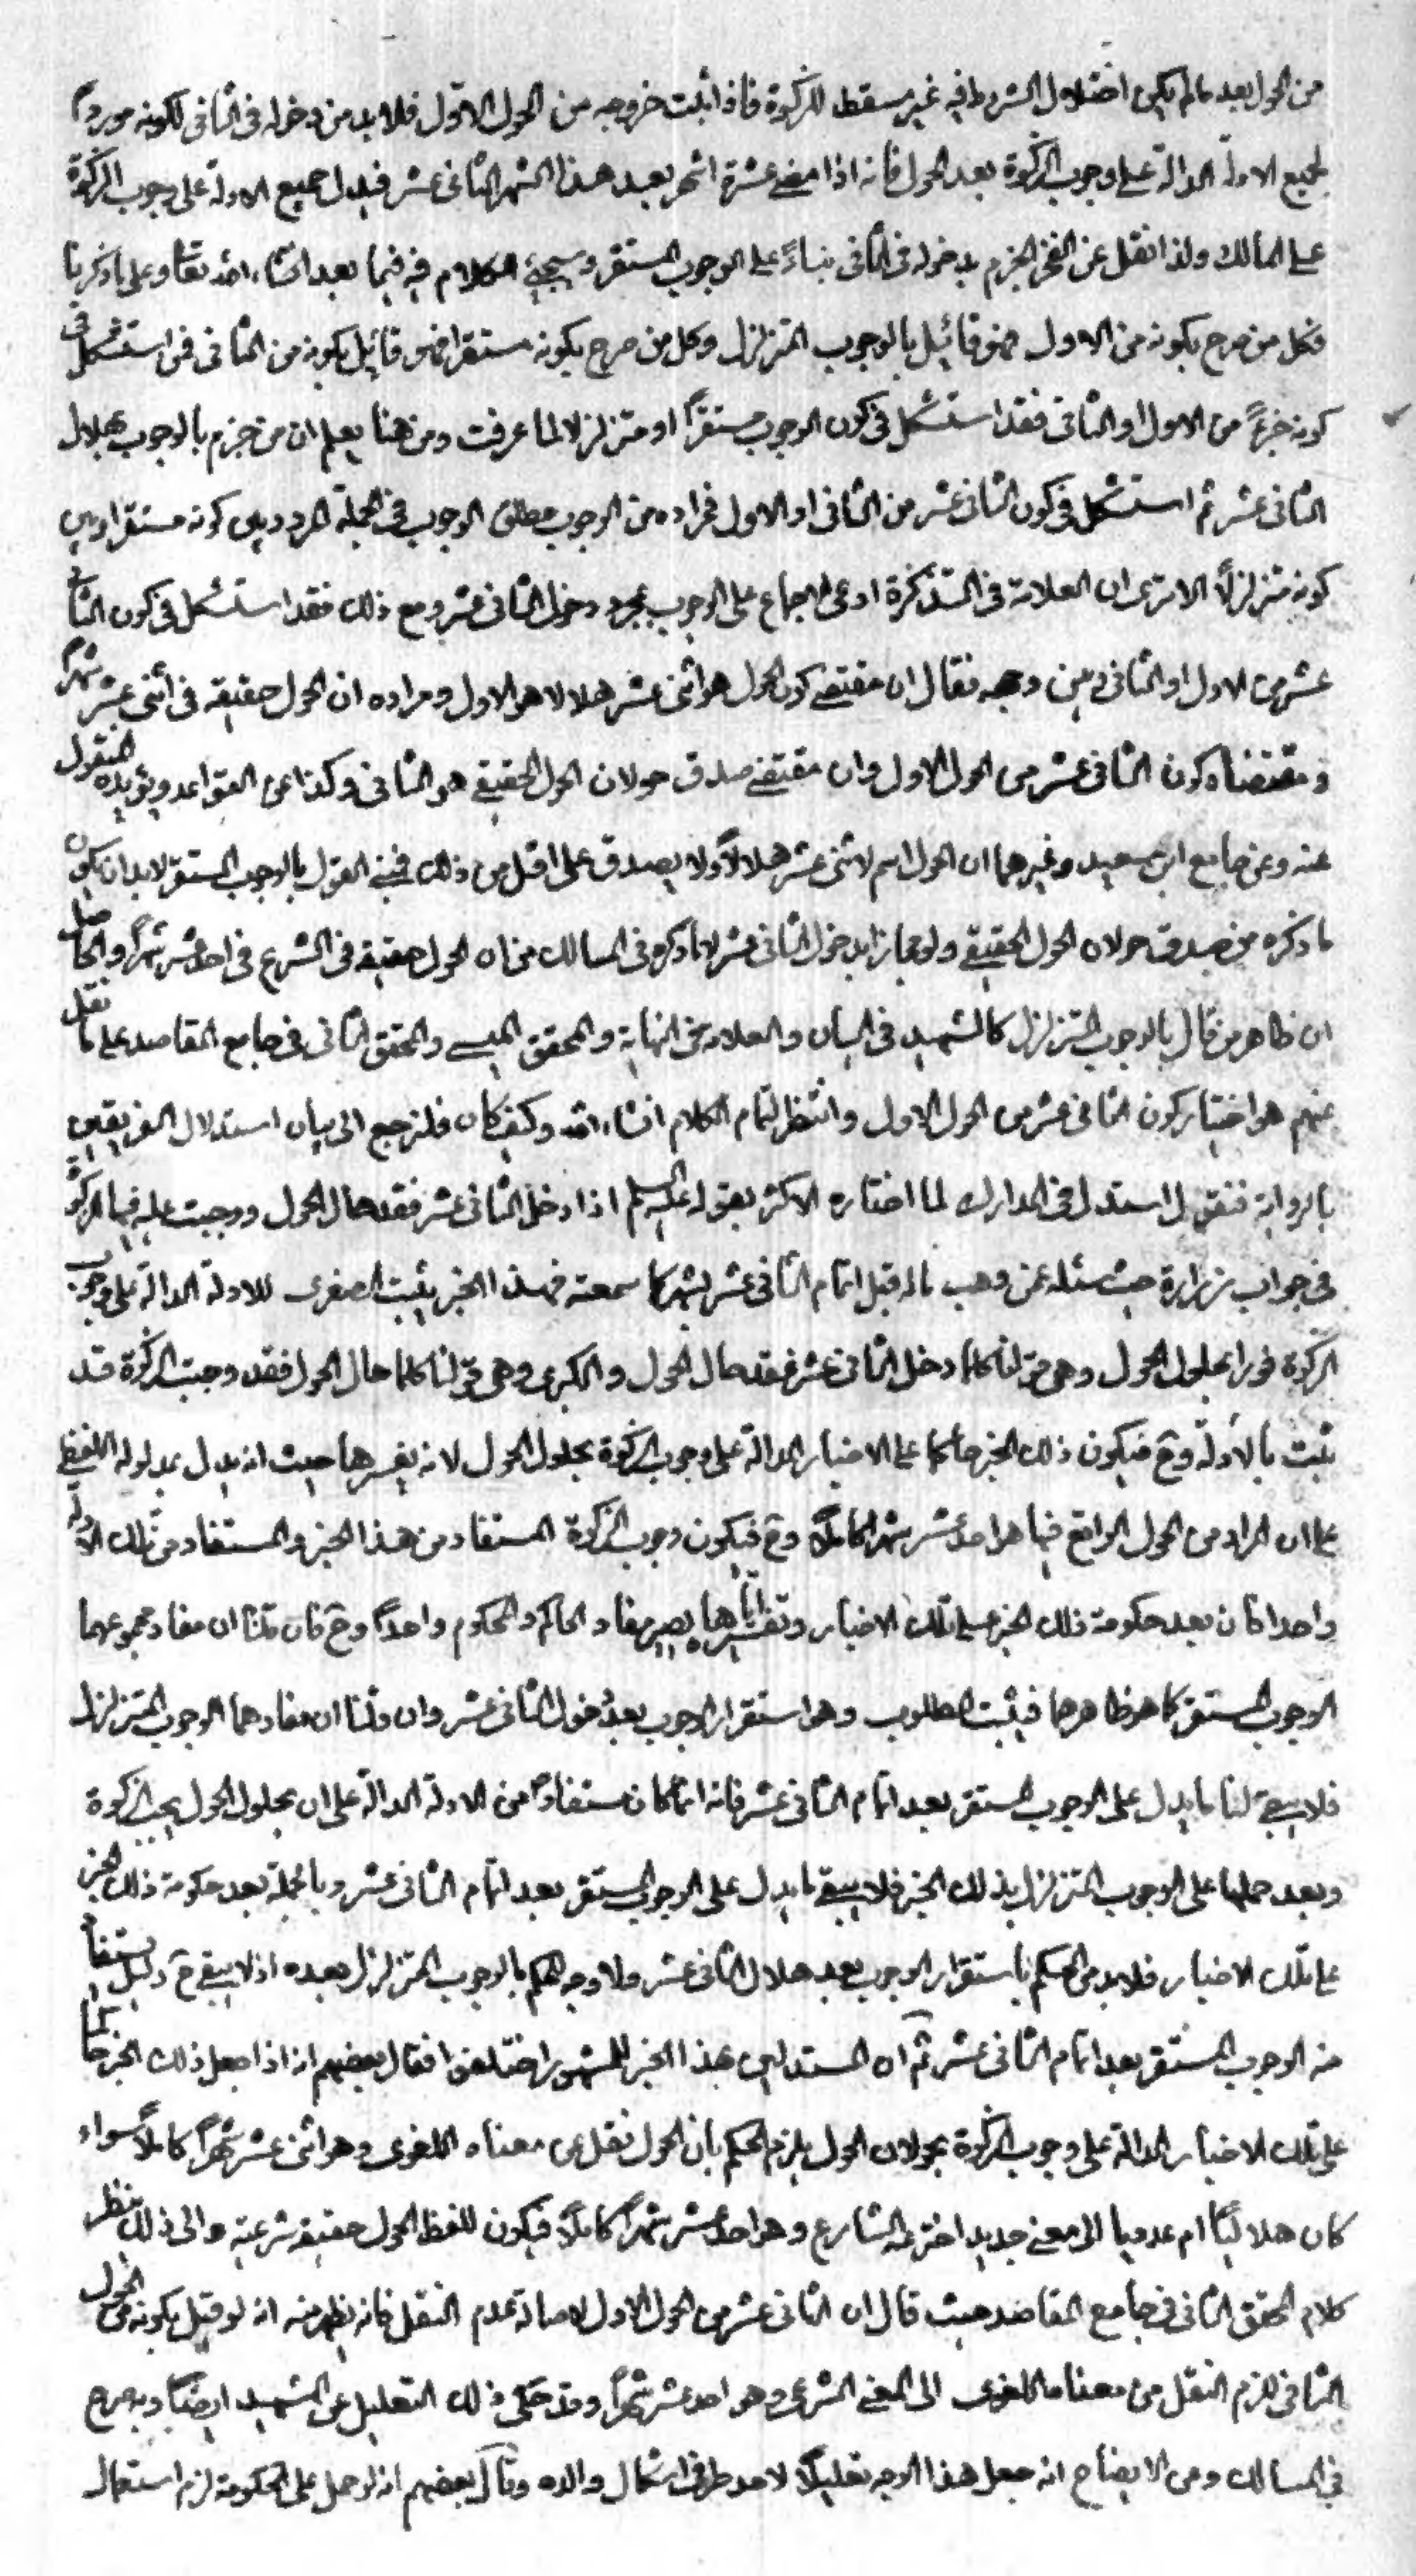 من الحول بعد ما لم يكن اختلال الشروط فيه غير مسقط للزكوة فاذا ثبت خروجه من الحول الاوّل فلا بد من دخوله فى الثانى لكونه موردا
لجميع الادلة الدالة على وجوب الزكوة بعد الحول فانه اذا مضى عشرة اشهر بعد هذا الشهر الثانى عشر فيدل جميع الادلة على وجوب الزكوة
على المالك ولذا نقل عن الفخر الجزم بدخوله فى الثانى بناءً على الوجوب المستقر وسيجئ الكلام فيه فيما بعد انشاء الله تعا وعلى ما ذكرنا
فكل من صرح بكونه من الاول فهو قائل بالوجوب المتزلزل وكل من صرح بكونه مستقرا فهو قائل بكونه من الثانى فمن استشكل فى
كونه جزءً من الاول او الثانى فقد استشكل فى كون الوجوب مستقرّاً او متزلزلا لما عرفت ومن هنا يعلم ان من جزم بالوجوب بهلال
الثانى عشر ثم استشكل فى كون الثانى عشر من الثانى او الاول فمراده من الوجوب مطلق الوجوب فى الجملة المردد بين كونه مستقرا وبين
كونه متزلزلاً الا ترى ان العلامة فى التذكرة ادعى الاجماع على الوجوب بمجرد دخول الثانى عشر ومع ذلك فقد استشكل فى كون الثانى
عشر من الاول او الثانى وبين وجهه فقال ان مقتضى كون الحول هو اثنى عشر هلالا هو الاول ومراده ان الحول حقيقة فى اثنى عشر شهرا
ومقتضاه كون الثانى عشر من الحول الاول وان مقتضى صدق حولان الحول الحقيقى هو الثانى وكذا عن القواعد ويؤيده المنقول
عنه وعن جامع ابن سعيد وغيرهما ان الحول اسم لاثنى عشر هلالاً ولا يصدق على اقل من ذلك فمبنى القول بالوجوب المستقر لا بد ان يكون
ما ذكره من صدق حولان الحول الحقيقى ولو مجازا بدخول الثانى عشر لا ما ذكره فى المسالك من ان الحول حقيقة فى الشرع فى احد عشر شهراً والحاصل
ان ظاهر من قال بالوجوب المتزلزل كالشهيد فى البيان والعلامة فى النهاية والمحقق الميسى والمحقق الثانى فى جامع المقاصد على ما نقل
عنهم هو اختيار كون الثانى عشر من الحول الاول وانتظر لتمام الكلام انشاء الله وكيف كان فلنرجع الى بيان استدلال الفريقين
بالرواية فنقول استدل فى المدارك لما اختاره الاكثر بقوله عليه السلم اذا دخل الثانى عشر فقد حال الحول ووجبت عليه فيها الزكوة
فى جواب زرارة حيث سئله عن وهب ماله قبل اتمام الثانى عشر بشهر كما سمعته فهذا الخبر يثبت الصغرى للادلة الدالة على وجوب
الزكوة فورا بحلول الحول وهى قولنا كلما دخل الثانى عشر فقد حال الحول والكبرى وهى قولنا كلما حال الحول فقد وجبت الزكوة قد
ثبت بالأدلة وح فيكون ذلك الخبر حاكما على الاخبار الدالة على وجوب الزكوة بحلول الحول لانه يفسرها حيث انه يدل بمدلوله اللفظى
على ان المراد من الحول الواقع فيها هو احد عشر شهرا كاملاً وح فيكون وجوب الزكوة المستفاد من هذا الخبر والمستفاد من تلك الادلة
واحدا فان بعد حكومة ذلك الخبر على تلك الاخبار وتفسيره اياها يصير مفاد الحاكم والمحكوم واحداً وح فان قلنا ان مفاد مجموعهما
الوجوب المستقر كما هو ظاهرهما فيثبت المطلوب وهو استقرار الوجوب بعد دخول الثانى عشر وان قلنا ان مفادهما الوجوب المتزلزل
فلا يبقى لنا ما يدل على الوجوب المستقر بعد اتمام الثانى عشر فانه انما كان مستفاداً من الادلة الدالة على ان بحلول الحول يجب الزكوة
وبعد حملها على الوجوب المتزلزل بذلك الخبر فلا يبقى ما يدل على الوجوب المستقر بعد اتمام الثانى عشر وبالجملة بعد حكومة ذلك الخبر
على تلك الاخبار فلا بد من الحكم باستقرار الوجوب بعد هلال الثانى عشر ولا وجه للحكم بالوجوب المتزلزل بعده اذ لا يبقى ح دليل يستفاد
منه الوجوب المستقر بعد اتمام الثانى عشر ثم ان المستدلين بهذا الخبر للمشهور اختلفوا فقال بعضهم انه اذا جعل ذلك الخبر حاكما
على تلك الاخبار الدالة على وجوب الزكوة بحولان الحول يلزم الحكم بان الحول نقل من معناه اللغوى وهو اثنى عشر شهراً كاملاً سواء
كان هلالياً ام عدديا الى معنى جديد اخترعه الشارع وهو احد عشر شهراً كاملاً فيكون للفظ الحول حقيقة شرعية والى ذلك ينظر
كلام المحقق الثانى فى جامع المقاصد حيث قال ان الثانى عشر من الحول الاول لاصالة عدم النقل فانه يظهر منه انه لو قيل بكونه من الحول
الثانى لزم النقل من معناه اللغوى الى المعنى الشرعى وهو احد عشر شهراً وقد حكى ذلك التعليل عن الشهيد ايضاً وبه صرح
فى المسالك وعن الايضاح انه جعل هذا الوجه تعليلاً لاحد طرفى اشكال والده وقال بعضهم انه لو حمل على الحكومة لزم استعمال